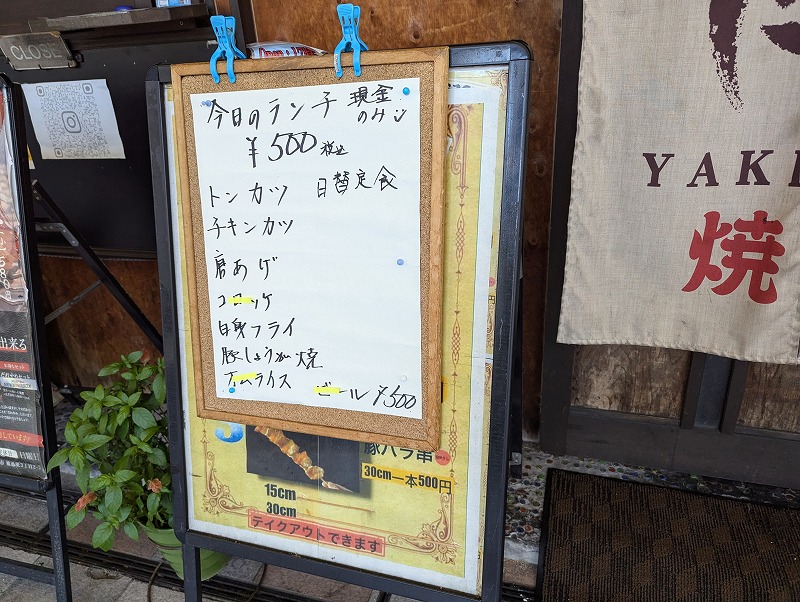 CLOSE
今日のランチ 現金
のみ
¥500 税込
トンカツ 日替定食
チキンカツ
唐あげ
コロッケ
白身フライ
豚しょうが焼
オムライス ビール ¥500
豚バラ串
30cm一本500円
15cm
30cm
テイクアウトできます
YAK
焼
出来る